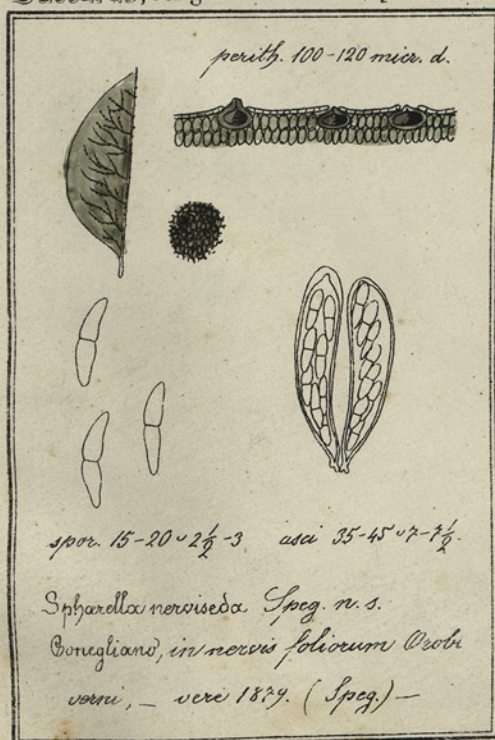 perith. 100-120 micr. d.
spor. 15-20 ᵕ 2½-3 asci 35-45 ᵕ 7-7½.
Sphærella nerviseda Speg. n. s.
Conegliano, in nervis foliorum Orobi
verni, — vere 1879. (Speg.) —